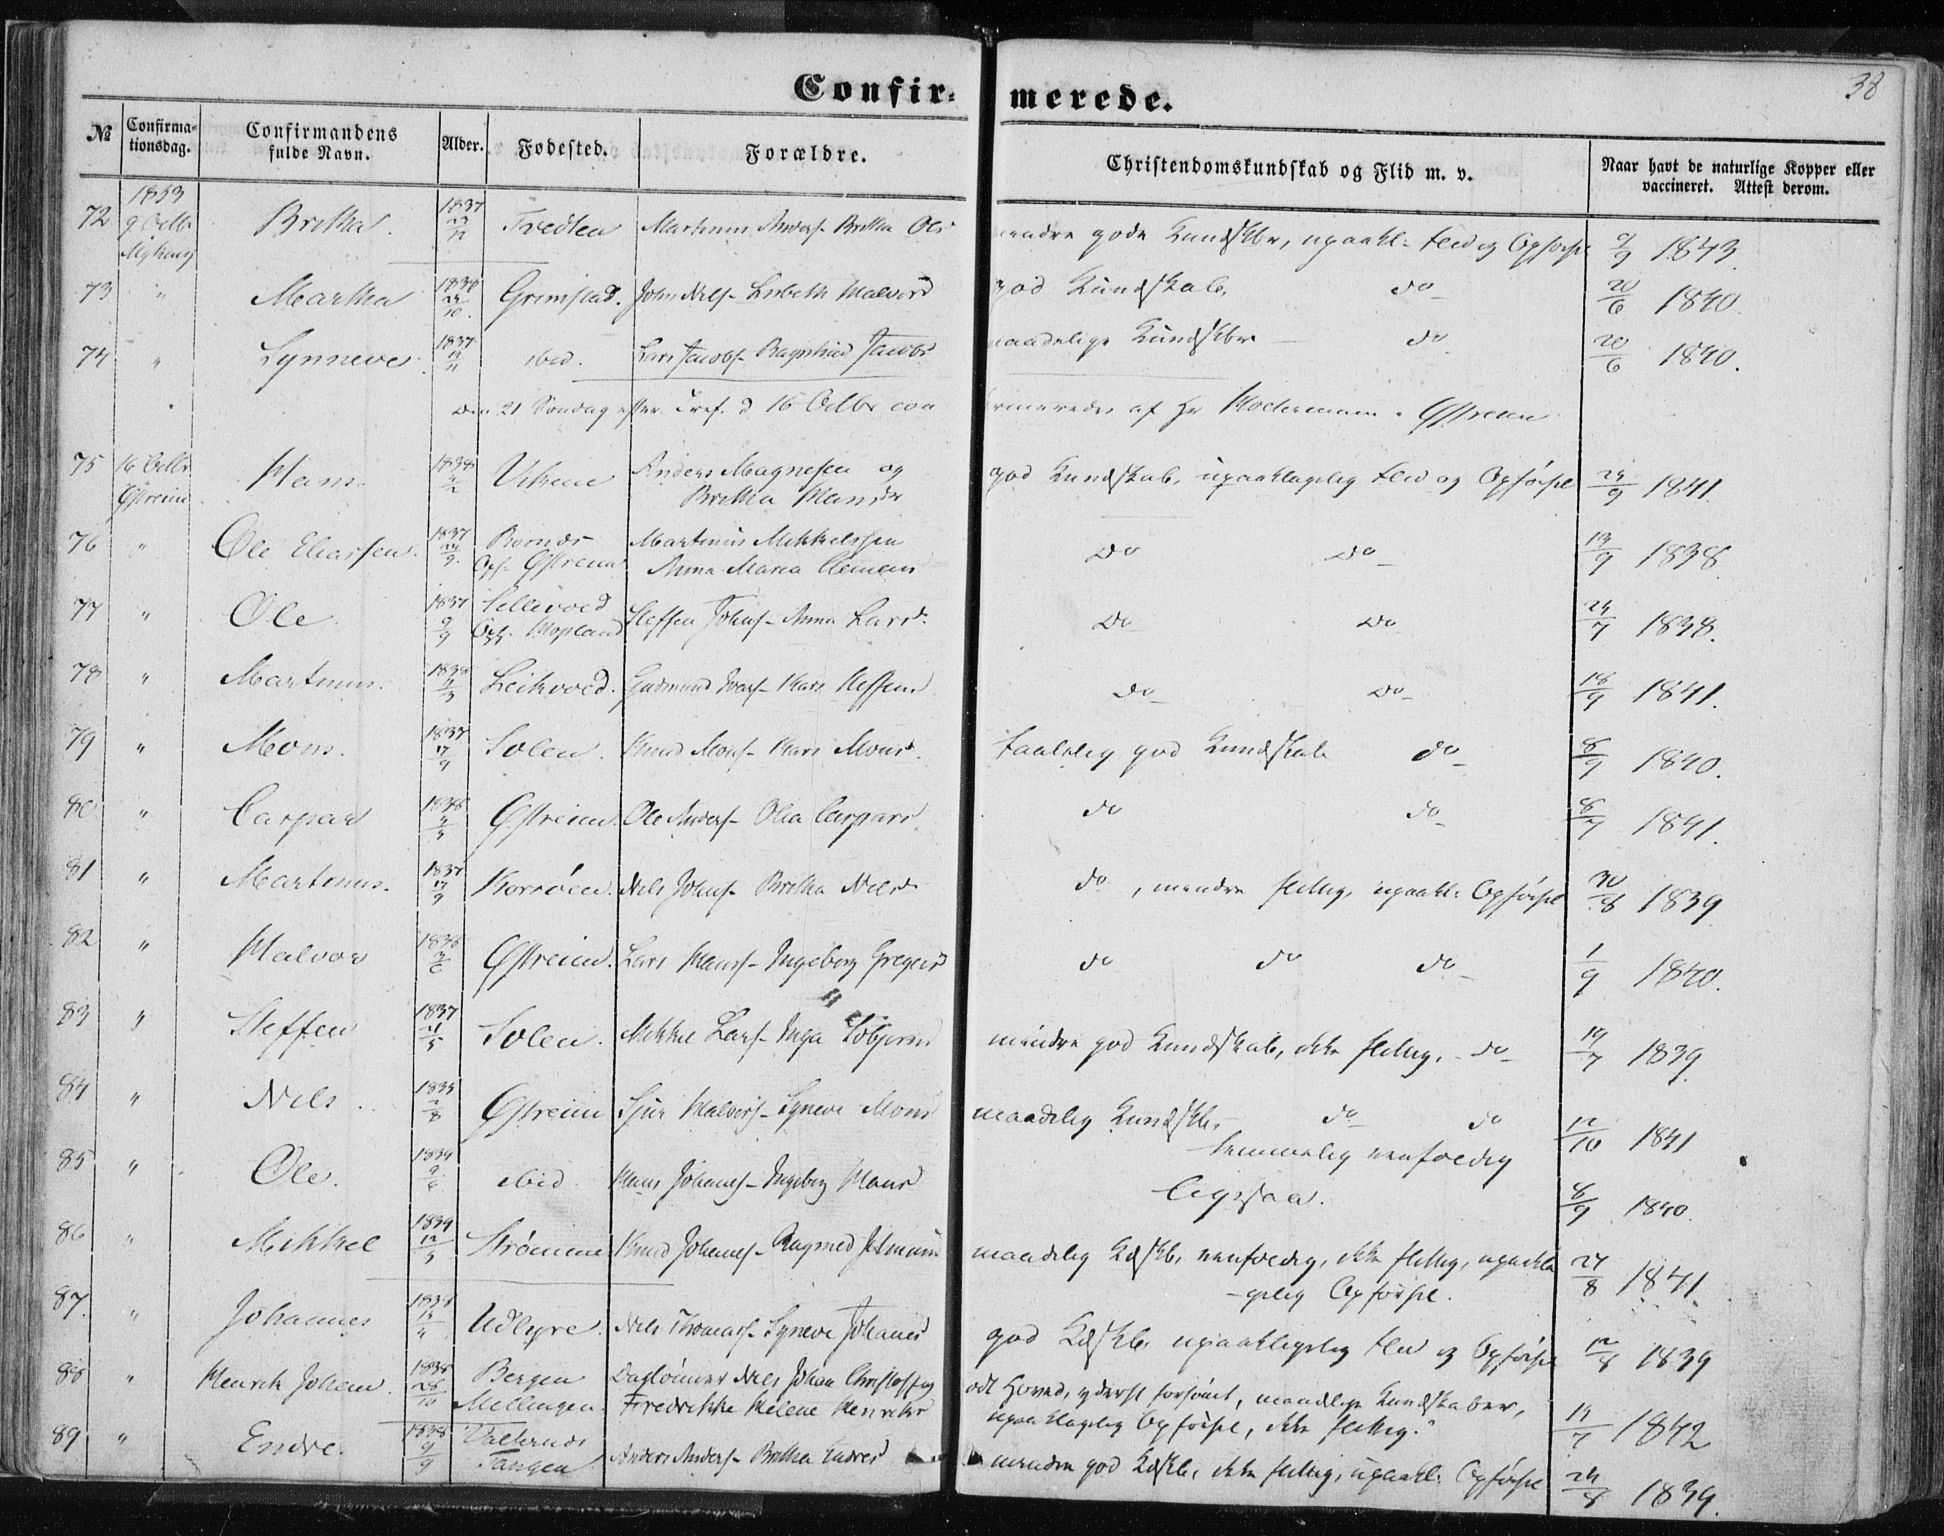 38
Confirmerede.
№
Confirmationsdag.
Confirmandens fulde Navn.
Alder.
Fødested.
Forældre.
Christendomskundskab og Flid m. v.
Naar havt de naturlige Kopper eller vaccineret. Attest derom.
72 1853 9 Octbr Myking Britha. 1837 Fredlen Martinus Anders- Britha Ols mindre gode Kundskbr, upaakl- Flid og Opførsel 9/9 1843.
73 " Martha 1838 /10 Grimstad. John Nils- Lisbeth Halvors god Kundskab, do 20/6 1840.
74 " Synneve 1837 /11 ibid. Lars Jacobs- Ragnhild Jacobs maadelige Kundskbr do 20/6 1840.
den 21 Søndag efter Tref. d 16 Octbr con firmeredes af Hr i Østreim
75 16 Octbr Østreim Hans 1838 /2 Vikene Anders Magnesen og Britha Hansd. god Kundskab, upaaklagelig Flid og Opførsel 24/9 1841.
76 " Ole Eliassen. 1837 /9 Østreim Martinus Mikkelssen Anna Maria Clemens do do 13/9 1838.
77 " Ole. 1837 9/9 Sellevold Opf. Hopland Steffen Johns- Anna Larsd. do do 24/7 1838.
78 " Martinus. 1838 /3 Leikvold. Gudmund Ivers- Kari Steffens do do 18/9 1841.
79 " Mons. 1837 17/9 Solen. Knud Mons- Kari Monsd. taalelig god Kundskab do 8/9 1840.
80 " Caspar 1838 /3 Østreim. Ole Anders- Olia Caspars. do do 8/9 1841.
81 " Martinus. 1837 17/9 Korsøen. Nils Johns- Britha Nilsd. do, mindre flittig, upaakl. Opførsel 30/8 1839
82 " Halvor 1838 /6 Østreim. Lars Hans- Ingeborg Gregers do do do 1/9 1840.
83 " Steffen 1837 /5 Solen. Mikkel Lars- Inga Esbjørns mindre god Kundskab, ikke flittig, do 19/7 1839.
84 " Nils. 1835 /8 Østreim Sjur Halvors- Syneve Mons maadelig Kundskb. do do 12/10 1841
85 " Ole. 1834 /6 ibid. Hans Johanes- Ingeborg Hans temmelig eenfoldig ligesaa. 8/9 1840.
86 " Mikkel 1834 12/3 Strømme Knud Johanes- maadelig Kdskb, eenfoldig, ikke flittig, upaakla-gelig Opførsel. 27/8 1841.
87. " Johannes 1838 Udlyre. Nils Thomas- Syneve Johanes god Kdskb. upaaklagelig Flid og Opførsel 12/8 1839
88 " Henrik Johan. 1838 28/10 Bergen Mellingen. Daglønner Nils Johan Christoffers Fredrikke Helene Henriks godt Hoved, yderst forsømt, maadelige Kundskaber, upaaklagelig Opførsel, ikke flittig. 14/7 1842
89 " Endre. 1838 9/9 Tangen Anders Anders- Britha Endres mindre god Kdskb, ikke flittig, upaakl. Opførsel 24/8 1839.